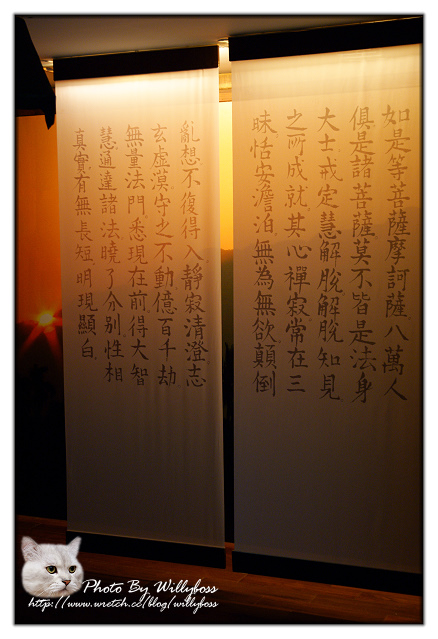 如是等菩薩摩訶薩八萬人
俱是諸菩薩莫不皆是法身
大士戒定慧解脫解脫知見
之所成就其心禪寂常在三
昧恬安澹泊無為無欲顛倒
亂想不復得入靜寂清澄志
玄虛漠守之不動億百千劫
無量法門悉現在前得大智
慧通達諸法曉了分別性相
真實有無長短明現顯白
Photo By Willyboss
http://www.wretch.cc/blog/willyboss